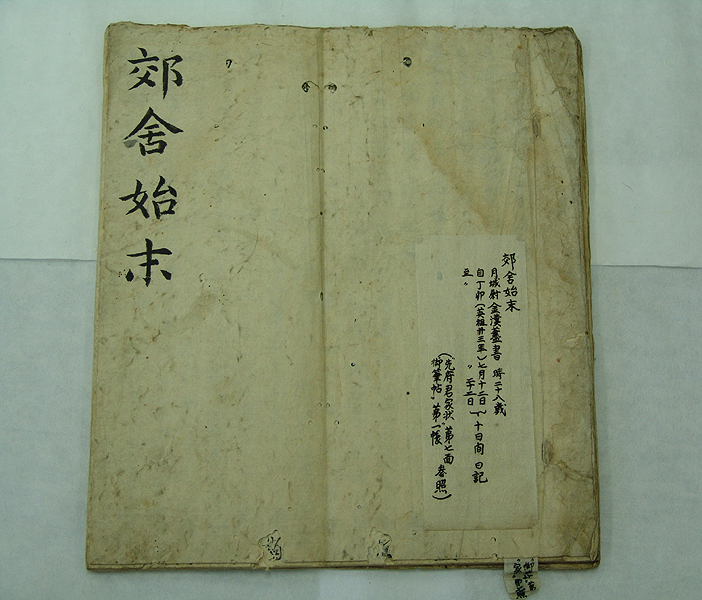 郊舍始末
郊舍始末
月城尉金漢藎書 時二十八歲
自丁卯(英祖廿三年)七月十二日~十日間 日記
至〃 〃 二十二日
(先府君家狀" 第七面 參照
御筆帖" 第一帳)